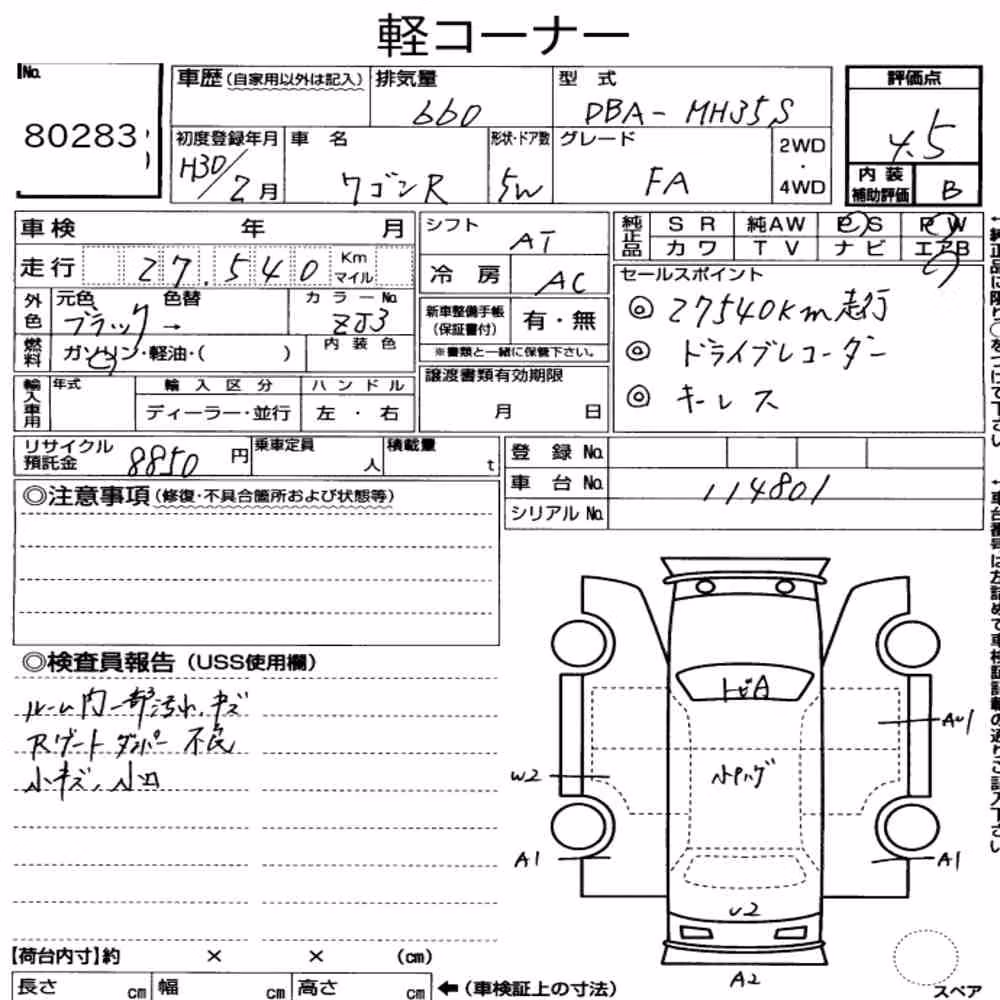 軽コーナー
No.
80283
車歴(自家用以外は記入)
排気量
660
型 式
DBA-MH35S
評価点
4.5
初度登録年月
H30/2月
車 名
ワゴンR
形状・ドア数
5W
グレード
FA
2WD
・
4WD
内 装
補助評価
B
車検 年 月
シフト
AT
純正品
S R 純AW P S P W
カ ワ T V ナ ビ エアB
走行 27,540 Km
マイル
冷 房
AC
セールスポイント
◎ 27540km走行
◎ ドライブレコーダー
◎ キーレス
外色
元色 色替
ブラック →
カ ラ ー No.
ZJ3
新車整備手帳
(保証書付)
有・無
※書類と一緒に保管下さい。
燃料
ガソリン・軽油・( )
内 装 色
輸入車用
年式
輸 入 区 分
ディーラー・並行
ハ ン ド ル
左 ・ 右
譲渡書類有効期限
月 日
リサイクル
預託金
8850 円
乗車定員
人
積載量
t
登 録 No.
車 台 No.
114801
シリアル No.
◎注意事項(修復・不具合箇所および状態等)
◎検査員報告(USS使用欄)
ルーム内一部汚れ、キズ
Rゲートダンパー不良
小キズ、小凹
トビA
AU1
W2
A1
A1
U2
A2
スペア
【荷台内寸】約 × × (cm)
長さ cm 幅 cm 高さ cm ←(車検証上の寸法)
←純正品に限り○をつけて下さい
←車台番号は左詰めで車検証記載の通りご記入下さい